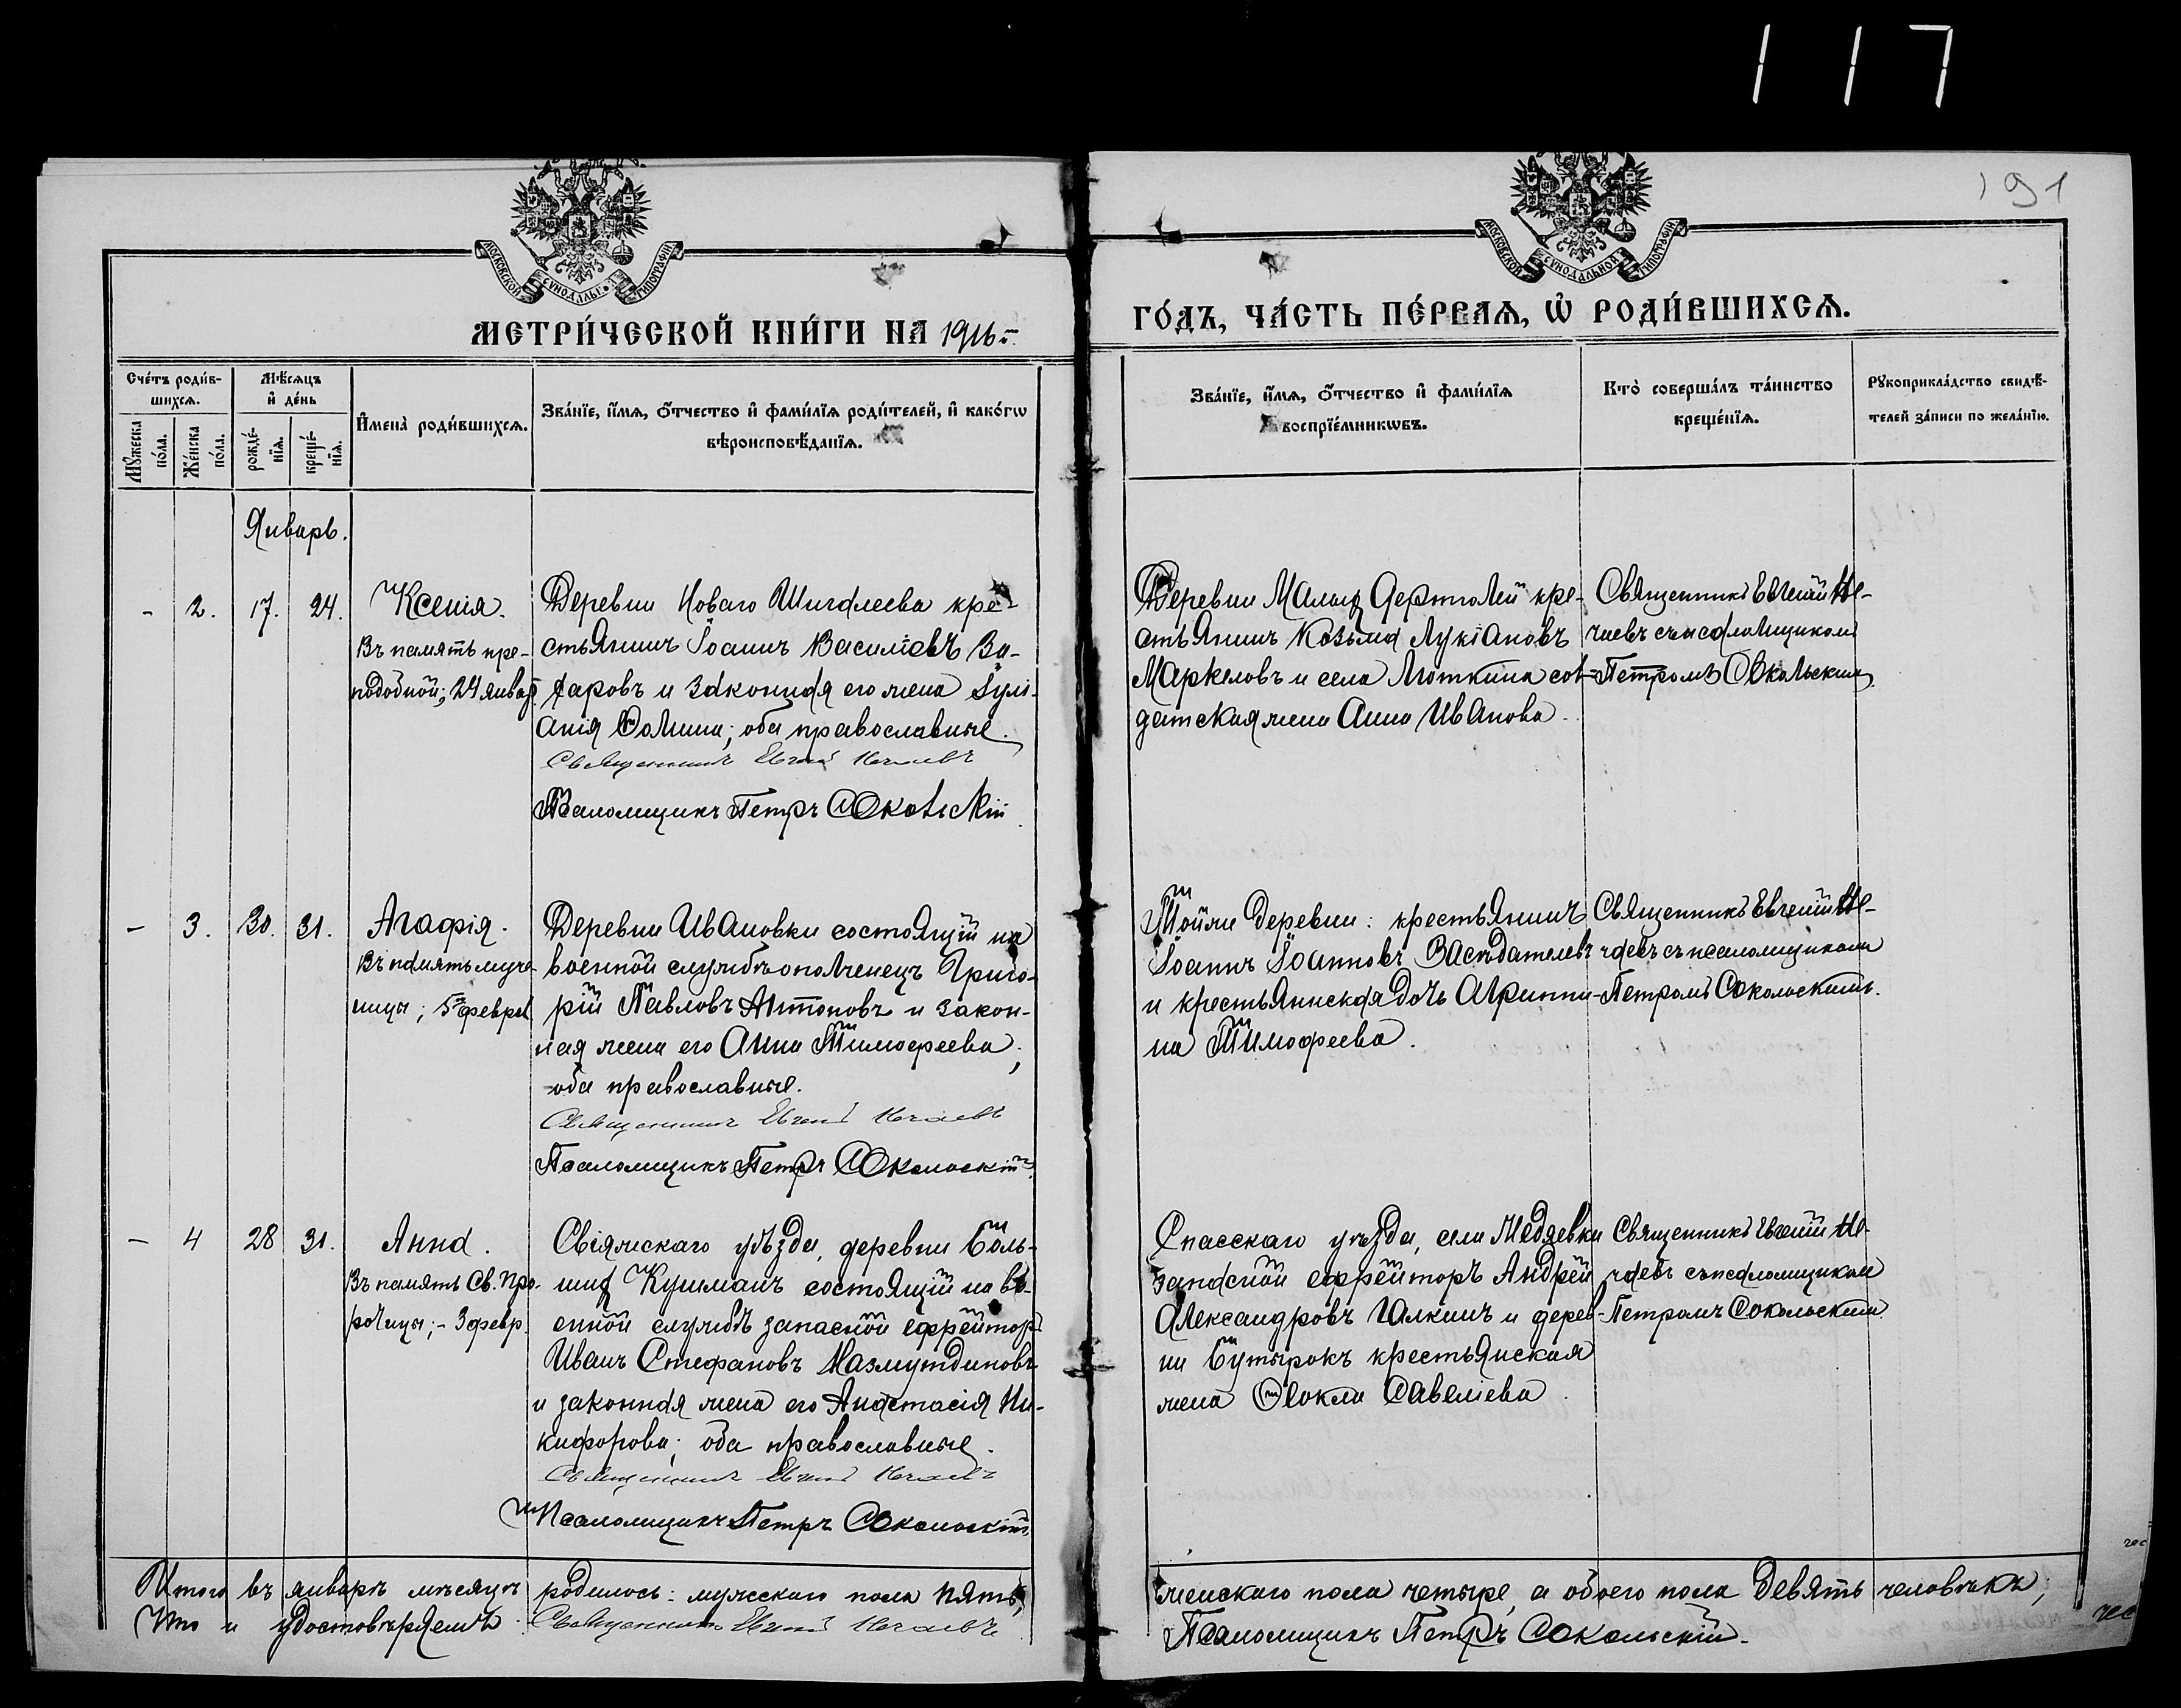 117
191
МОСКОВСКОЙ СУНОДАЛЬНОЙ ТИПОГРАФІИ
МОСКОВСКОЙ СУНОДАЛЬНОЙ ТИПОГРАФІИ
МЕТРИ́ЧЕСКОЙ КНИ́ГИ НА 1916 г.
ГО́ДЪ, ЧА́СТЬ ПЕ́РВАЯ, Ѽ РОДИ́ВШИХСЯ.
Сче́тъ роди́в-
шихся.
Мꙋ́жеска по́ла.
Же́нска по́ла.
Мѣ́сяцъ и де́нь
рожде́-
нїя.
креще́-
нїя.
И҆мена̀ роди́вшихся.
Зва́нїе, и҆́мя, ѻ҆́тчество и҆ фами́лїя роди́телей, и҆ како́гѡ
вѣроисповѣ́данїя.
Зва́нїе, и҆́мя, ѻ҆́тчество и҆ фами́лїя
воспрїе́мникѡвъ.
Кто̀ соверша́лъ та́инство
креще́нїя.
Рꙋкоприкла́дство свидѣ́-
телей за́писи по жела́нїю.
Январь.
- 2. 17. 24.
Ксенія.
Въ память пре-
подобной; 24 январ.
Деревни Новаго Шигалеева кре-
стьянинъ Іоаннъ Василіевъ За-
харовъ и законная его жена Іулі-
анія Фомина; оба православные.
Священникъ Евгеній Нечаевъ
Псаломщикъ Петръ Сокольскій
Деревни Малыя Дертюлей кре-
стьянинъ Козьма Лукіановъ
Маркеловъ и села Люткина сол-
датская жена Анна Иванова.
Священникъ Евгеній Не-
чаевъ съ псаломщикомъ
Петромъ Сокольскимъ
- 3. 30. 31.
Агафія.
Въ память муче-
ницы; 5 февраля
Деревни Ивановки состоящій на
военной службѣ ополченецъ Григо-
рій Павловъ Антоновъ и закон-
ная жена его Анна Тимофеева;
оба православные.
Священникъ Евгеній Нечаевъ
Псаломщикъ Петръ Сокольскій
Тойже деревни: крестьянинъ
Іоаннъ Іоанновъ Засѣдателевъ
и крестьянская дочь Агриппи-
на Тимофеева.
Священникъ Евгеній Не-
чаевъ съ псаломщикомъ
Петромъ Сокольскимъ.
- 4 28 31.
Анна.
Въ память Св. Про-
рочицы; - 3 февр.
Свіяжскаго уѣзда, деревни Боль-
шихъ Кушманъ состоящій на во-
енной службѣ запасной ефрейторъ
Иванъ Стефановъ Мазмутдиновъ
и законная жена его Анастасія Ни-
кифорова; оба православные.
Священникъ Евгеній Нечаевъ
Псаломщикъ Петръ Сокольскій
Спасскаго уѣзда, села Медяевки
запасной ефрейторъ Андрей
Александровъ Галкинъ и дерев-
ни Бутырокъ крестьянская
жена Ѳеокла Савеліева.
Священникъ Евгеній Не-
чаевъ съ псаломщикомъ
Петромъ Сокольскимъ
Итого въ январѣ мѣсяцѣ родилось: мужескаго пола пять,
женскаго пола четыре, а обоего пола девять человѣкъ;
Что и удостовѣряемъ Священникъ Евгеній Нечаевъ
Псаломщикъ Петръ Сокольскій.